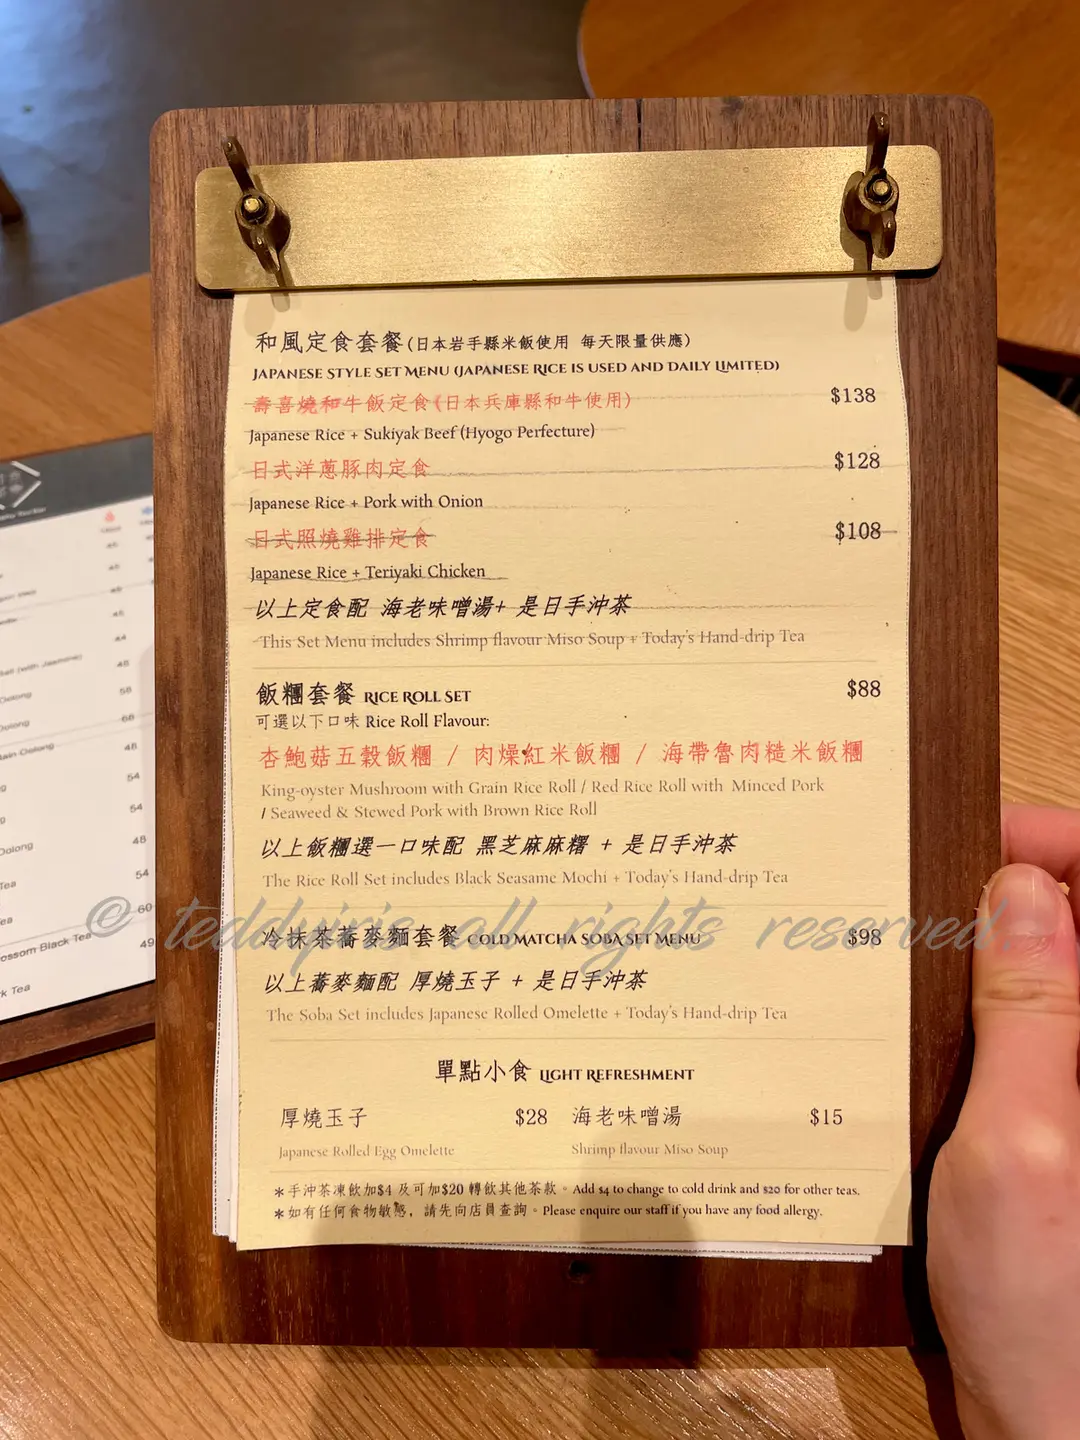 和風定食套餐(日本岩手縣米飯使用 每天限量供應)
JAPANESE STYLE SET MENU (JAPANESE RICE IS USED AND DAILY LIMITED)
壽喜燒和牛飯定食(日本兵庫縣和牛使用) $138
Japanese Rice + Sukiyak Beef (Hyogo Perfecture)
日式洋蔥豚肉定食 $128
Japanese Rice + Pork with Onion
日式照燒雞排定食 $108
Japanese Rice + Teriyaki Chicken
以上定食配 海老味噌湯+ 是日手沖茶
This Set Menu includes Shrimp flavour Miso Soup + Today's Hand-drip Tea
飯糰套餐 RICE ROLL SET $88
可選以下口味 Rice Roll Flavour:
杏鮑菇五穀飯糰 / 肉燥紅米飯糰 / 海帶魯肉糙米飯糰
King-oyster Mushroom with Grain Rice Roll / Red Rice Roll with Minced Pork
/ Seaweed & Stewed Pork with Brown Rice Roll
以上飯糰選一口味配 黑芝麻麻糬 + 是日手沖茶
The Rice Roll Set includes Black Seasame Mochi + Today's Hand-drip Tea
冷抹茶蕎麥麵套餐 COLD MATCHA SOBA SET MENU $98
以上蕎麥麵配 厚燒玉子 + 是日手沖茶
The Soba Set includes Japanese Rolled Omelette + Today's Hand-drip Tea
單點小食 LIGHT REFRESHMENT
厚燒玉子 $28 海老味噌湯 $15
Japanese Rolled Egg Omelette Shrimp flavour Miso Soup
*手沖茶凍飲加$4 及可加$20 轉飲其他茶款。Add $4 to change to cold drink and $20 for other teas.
*如有任何食物敏感，請先向店員查詢。Please enquire our staff if you have any food allergy.
© teddyiris all rights reserved.
(with Jasmine) 48
Oolong 58
Oolong 68
Oolong 48
54
54
Oolong 48
Tea 54
60
ossom Black Tea 49
k Tea